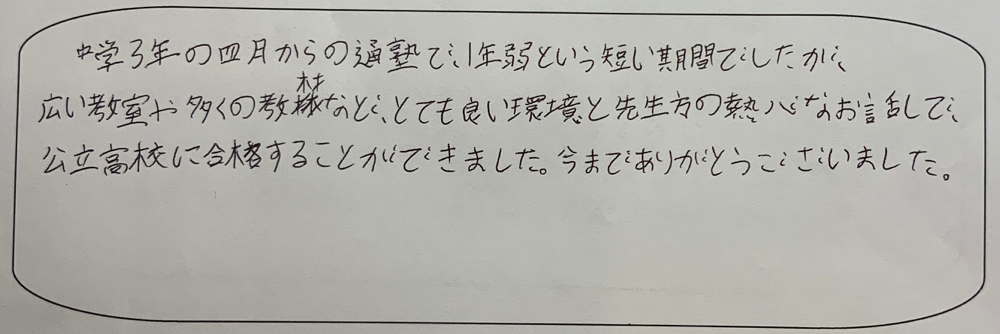 中学3年の四月からの通塾で、1年弱という短い期間でしたが、
広い教室や多くの教材など、とても良い環境と先生方の熱心なお話しで、
公立高校に合格することができました。今までありがとうございました。